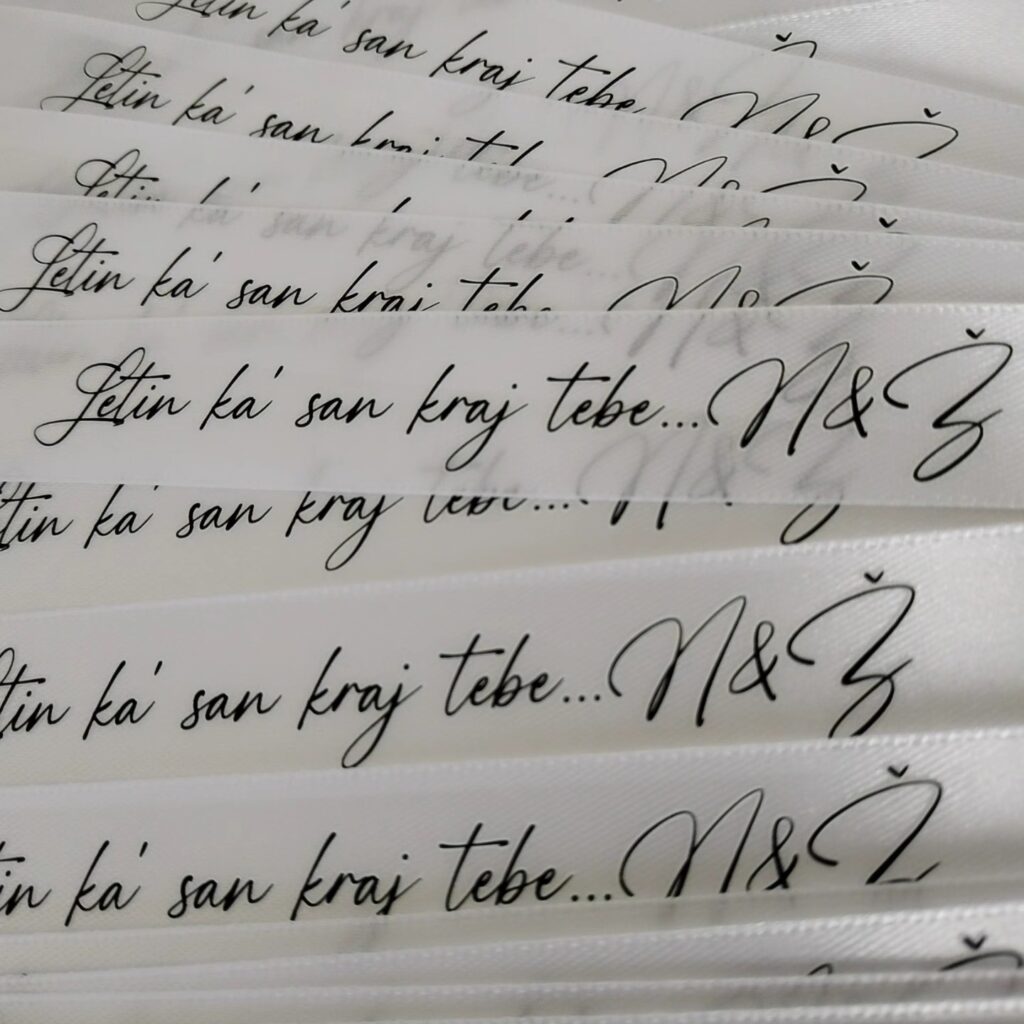 Letin ka' san kraj tebe
Letin ka' san kraj tebe... N & Ž
Letin ka' san
Letin ka' san kraj tebe N & Ž
Letin ka' san kraj tebe... N & Ž
ka' san kraj tebe... N & Ž
ka' san kraj tebe... N & Ž
ka' san kraj tebe... N & Ž